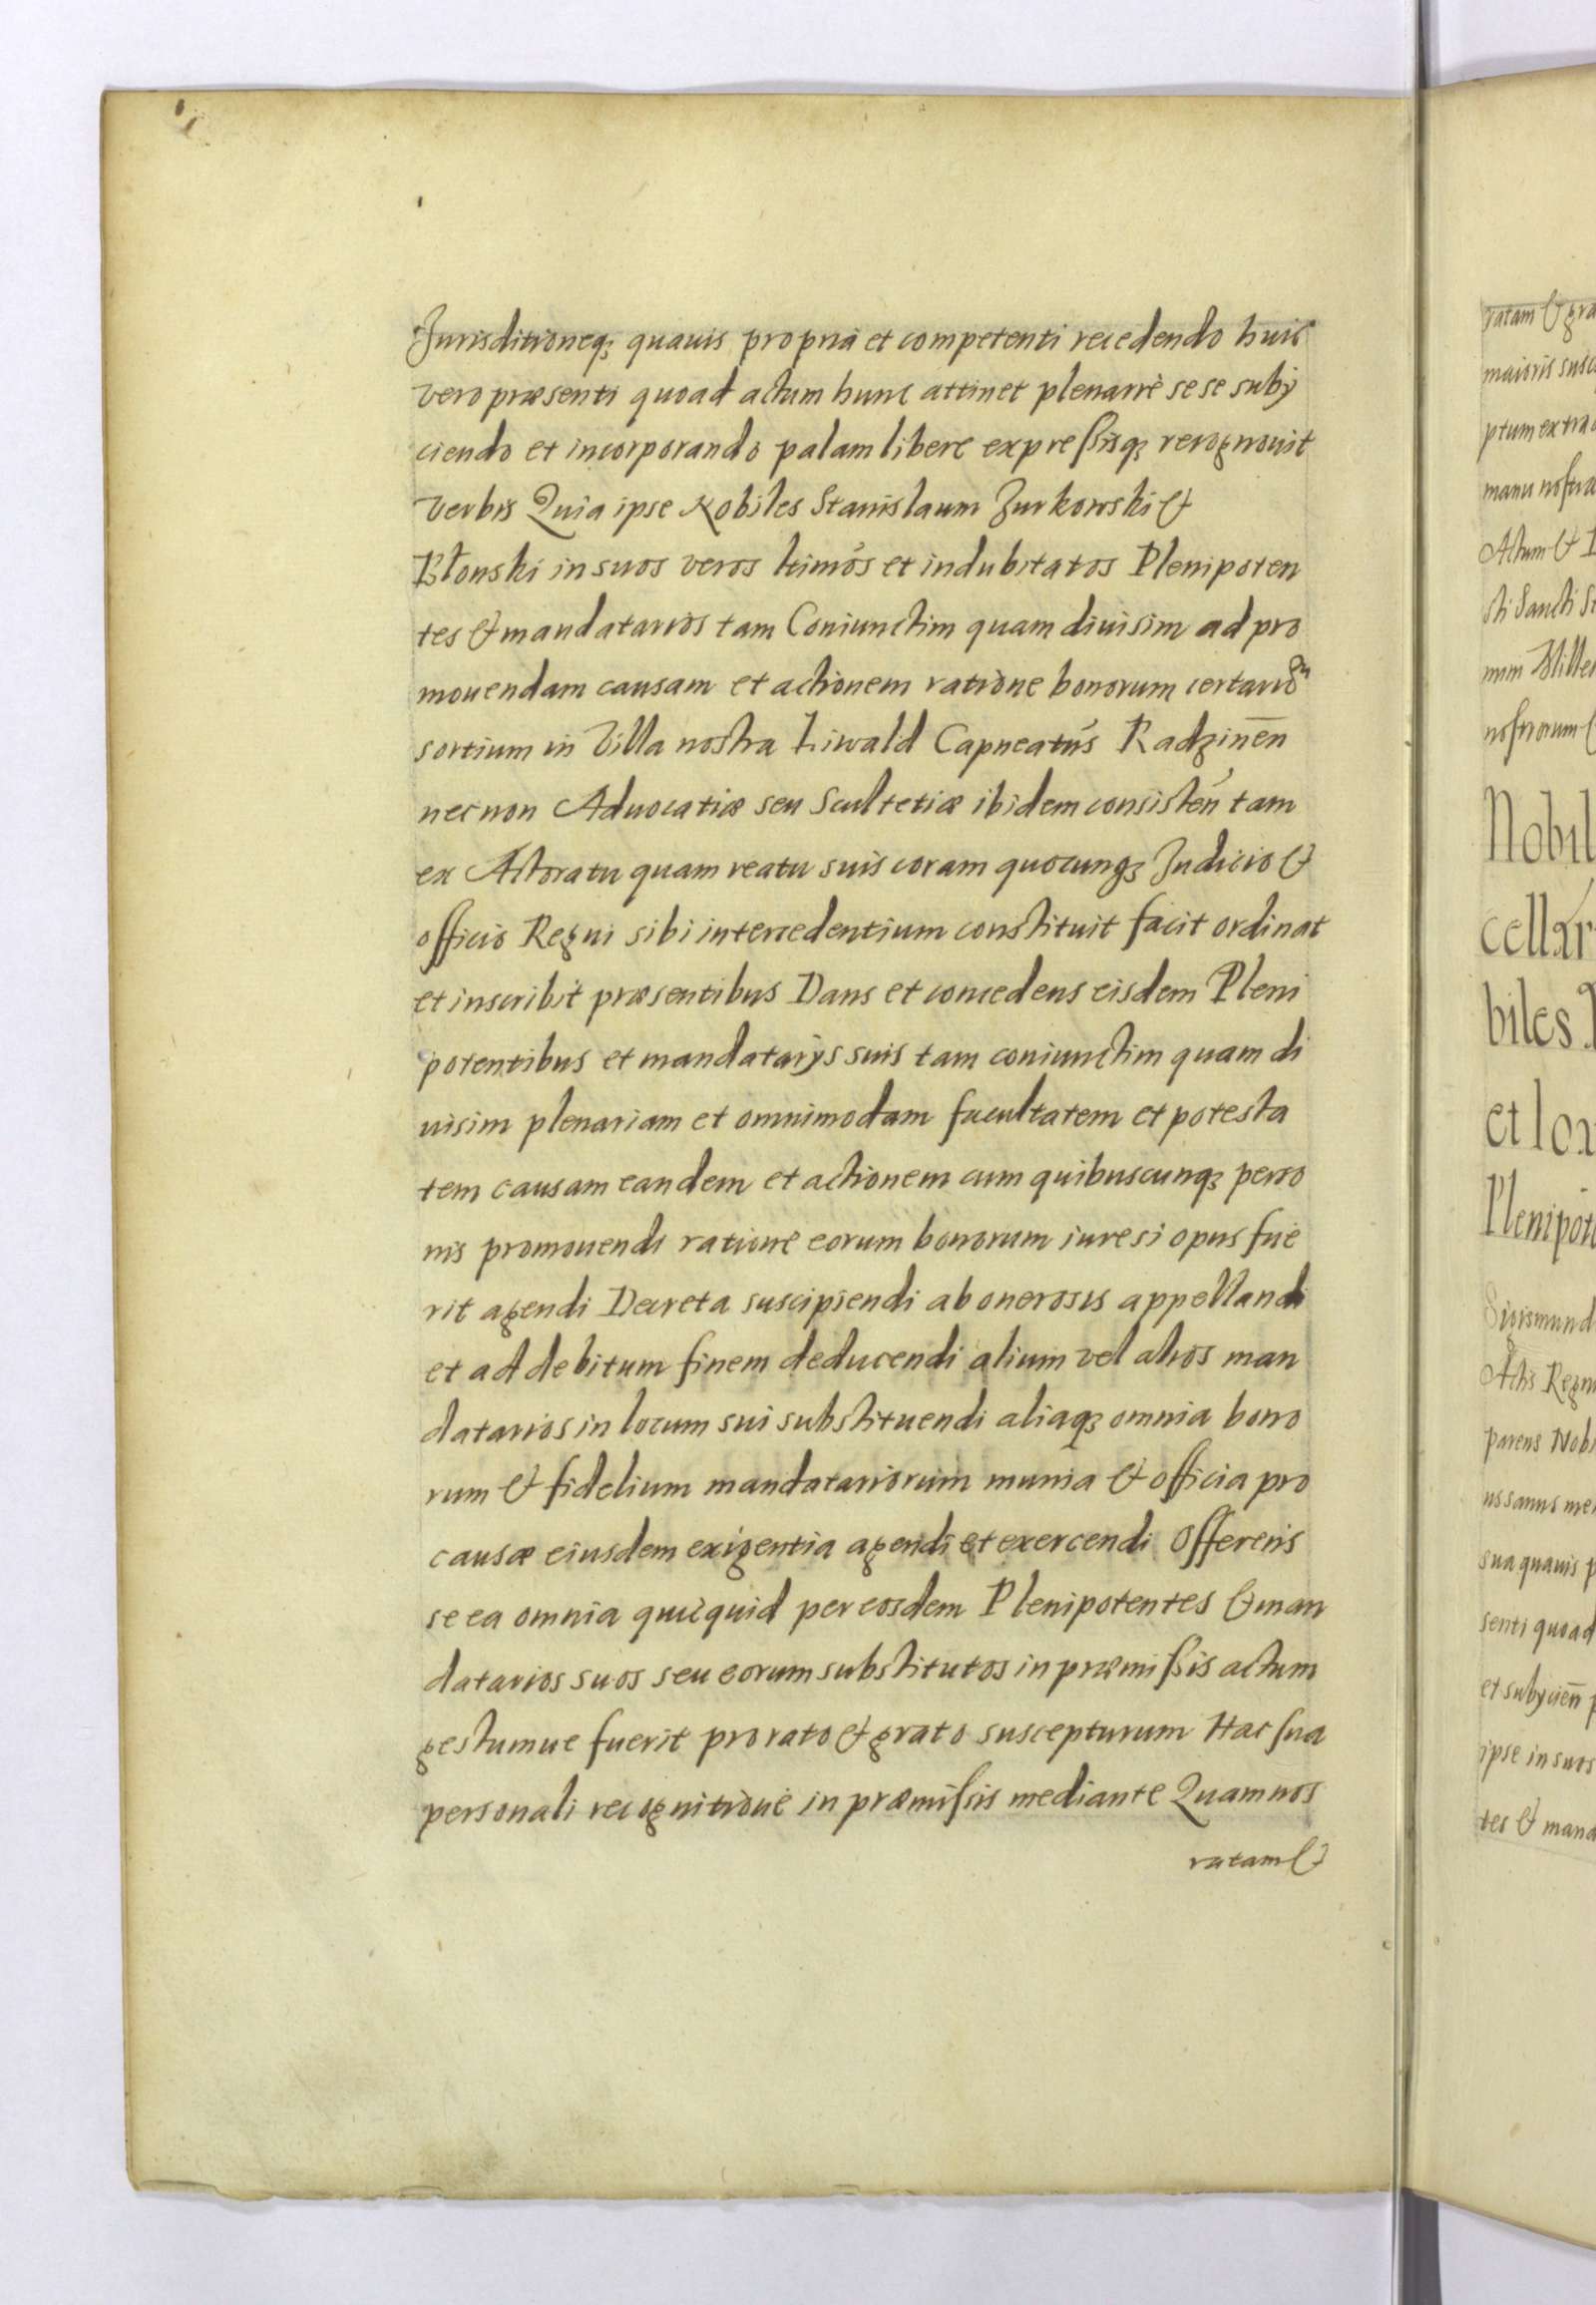 Jurisditioneq; quauis propria et competenti recedendo huic
vero præsenti quoad actum hunc attinet plenarie se se subij
ciendo et incorporando palam libere expressisq; recognouit
Verbis Quia ipse Nobiles Stanislaum Zurkowski &
Błonski in suos veros ltimos et indubitatos Plenipoten
tes & mandatarios tam Coniunctim quam diuisim ad pro
mouendam causam et actionem ratione bonorum certarum
sortium in Villa nostra Liwald Capneatus Radzinen
necnon Aduocatiæ seu Scultetiæ ibidem consisten tam
ex Actoratu quam reatu suis coram quocunq; Judicio &
officio Regni sibi intercedentium constituit facit ordinat
et inscribit præsentibus Dans et concedens eisdem Pleni
potentibus et mandatarijs suis tam coniunctim quam di
uisim plenariam et omnimodam facultatem et potesta
tem causam eandem et actionem cum quibuscunq; perso
nis promouendi ratione eorum bonorum iure si opus fue
rit agendi Decreta suscipiendi ab onerosis appellandi
et ad debitum finem deducendi alium vel alios man
datarios in locum sui substituendi aliaq; omnia bono
rum & fidelium mandatariorum munia & officia pro
causæ eiusdem exigentia agendi et exercendi Offerens
se ea omnia quicquid per eosdem Plenipotentes & man
datarios suos seu eorum substitutos in præmissis actum
gestumue fuerit pro rato & grato suscepturum Hac sua
personali recognitione in præmissis mediante Quam nos
ratam &
ratam & gra
maioris susc
ptum extra
manu nostra
Actum & D
sti Sancti St
mum Mille
nostrorum
Nobil
cellar
biles
et lo
Plenipote
Sigismund
Actis Regn
parens Nobi
us sanus me
sua quauis p
senti quoad
et subijcien p
ipse in suos
tes & manda